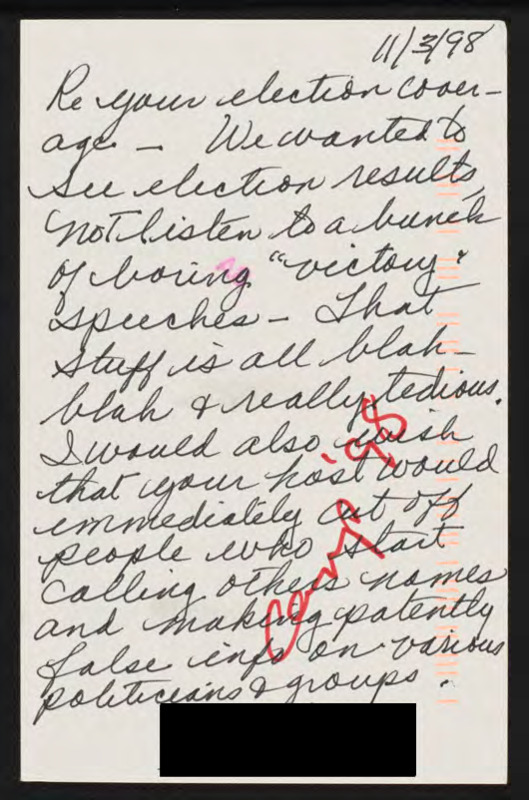 11/3/98
Re your election cover-
age — We wanted to
see election results,
not listen to a bunch
of boring "victory"
speeches — That
stuff is all blah-
blah & really tedious.
I would also wish
that your host would
immediately cut off
people who start
calling others names
and making patently
false info on various
politicians & groups.
Camp '98